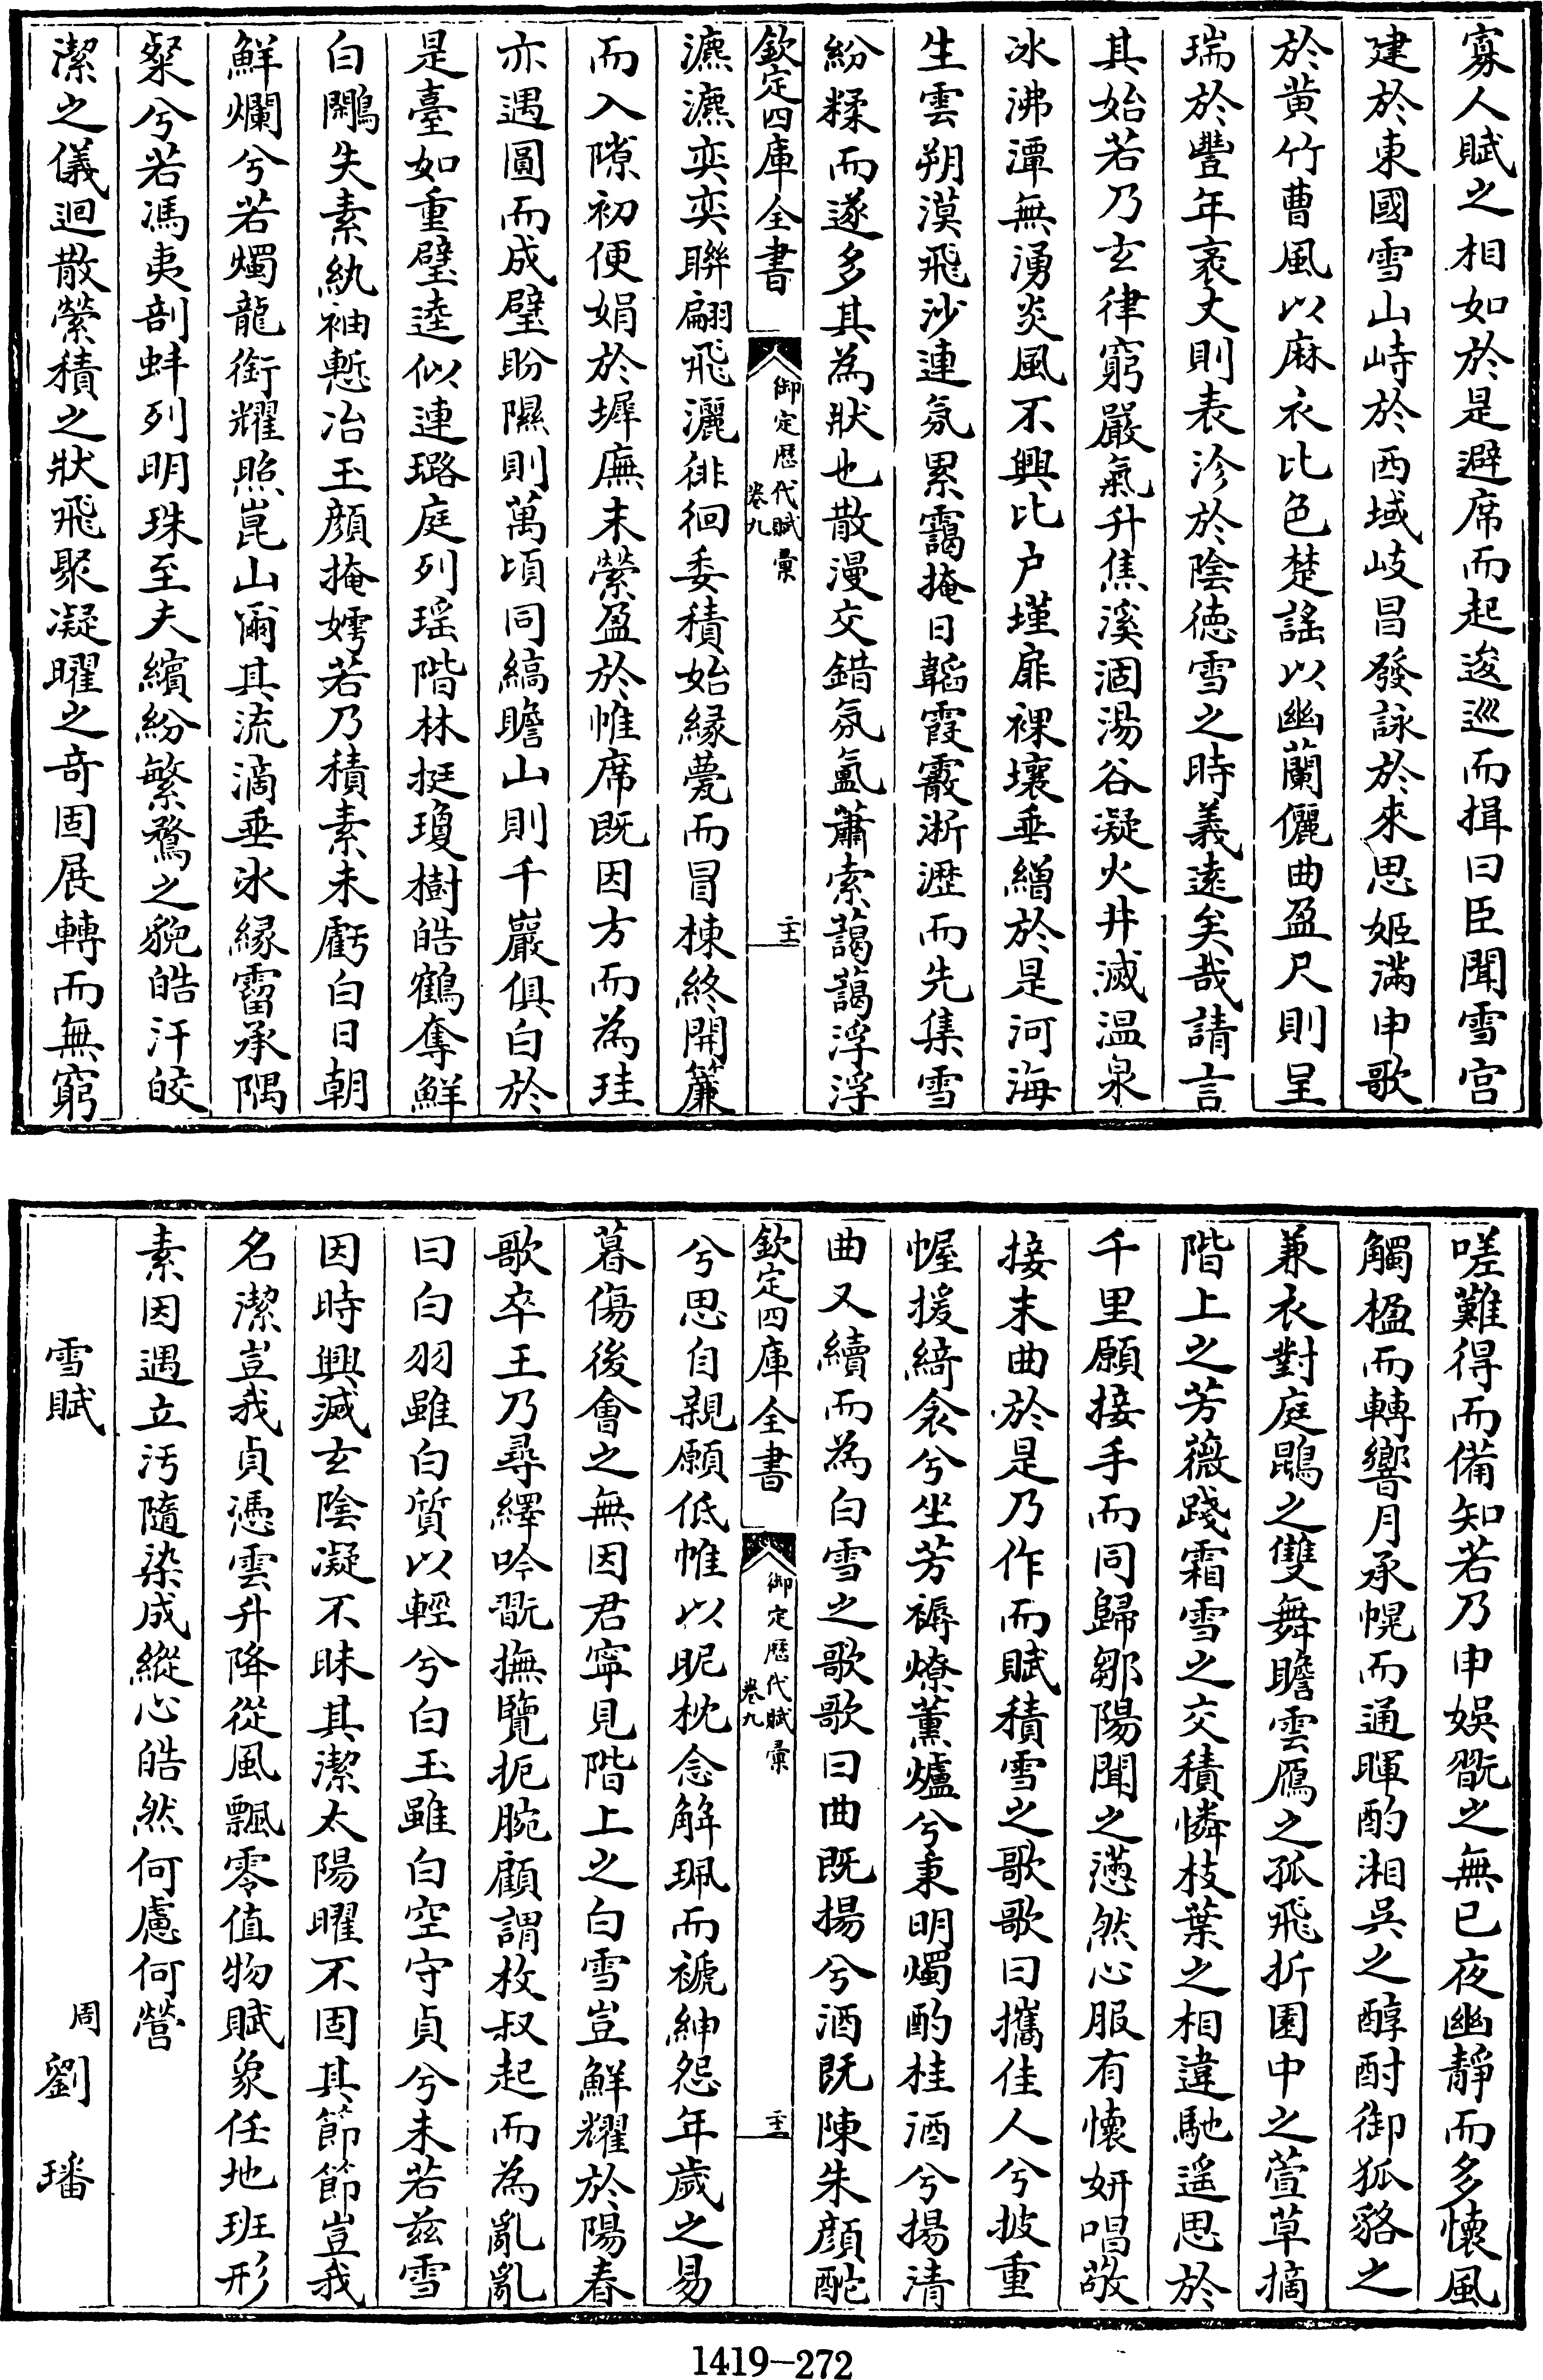 寡人賦之相如於是避席而起逡巡而揖曰臣聞雪宫
建於東國雪山峙於西域岐昌發詠於來思姬滿申歌
於黄竹曹風以麻衣比色楚謡以幽蘭儷曲盈尺則呈
瑞於豐年袤丈則表沴於陰德雪之時義逺矣哉請言
其始若乃玄律窮嚴氣升焦溪涸湯谷凝火井滅温泉
冰沸潭無湧炎風不興比户墐扉裸壤垂繒於是河海
生雲朔漠飛沙連氛累靄掩日韜霞霰淅瀝而先集雪
紛糅而遂多其為狀也散漫交錯氛氲蕭索藹藹浮浮
欽定四庫全書
御定歴代賦彙
卷九
二十一
瀌瀌奕奕聯翩飛灑徘徊委積始縁甍而冒棟終開簾
而入隙初便娟於墀廡末縈盈於帷席既因方而為珪
亦遇圓而成璧盼隰則萬頃同縞瞻山則千巖俱白於
是臺如重璧逵似連璐庭列瑶階林挺瓊樹皓鶴奪鮮
白鷴失素紈袖慙冶玉顔掩嫮若乃積素未虧白日朝
鮮爛兮若燭龍銜耀照崑山爾其流滴垂冰縁霤承隅
粲兮若馮夷剖蚌列明珠至夫繽紛繁騖之貌皓汗皎
潔之儀迴散縈積之狀飛聚凝曜之奇固展轉而無窮
嗟難得而備知若乃申娱翫之無已夜幽靜而多懷風
觸楹而轉響月承幌而通暉酌湘吳之醇酎御狐貉之
兼衣對庭鵾之雙舞瞻雲鴈之孤飛折園中之萱草摘
階上之芳薇踐霜雪之交積憐枝葉之相違馳遥思於
千里願接手而同歸鄒陽聞之懣然心服有懷妍唱敬
接末曲於是乃作而賦積雪之歌歌曰攜佳人兮披重
幄援綺衾兮坐芳褥燎薰爐兮秉明燭酌桂酒兮揚清
曲又續而為白雪之歌歌曰曲既揚兮酒既陳朱顔酡
欽定四庫全書
御定歴代賦彙
卷九
二十二
兮思自親願低帷以昵枕念解珮而褫紳怨年歲之易
暮傷後會之無因君寧見階上之白雪豈鮮耀於陽春
歌卒王乃尋繹吟翫撫覽扼腕顧謂枚叔起而為亂亂
曰白羽雖白質以輕兮白玉雖白空守貞兮未若兹雪
因時興滅玄陰凝不昧其潔太陽曜不固其節節豈我
名潔豈我貞憑雲升降從風飄零值物賦象任地班形
素因遇立汚隨染成縱心皓然何慮何營
雪賦
周
劉璠
1419-272